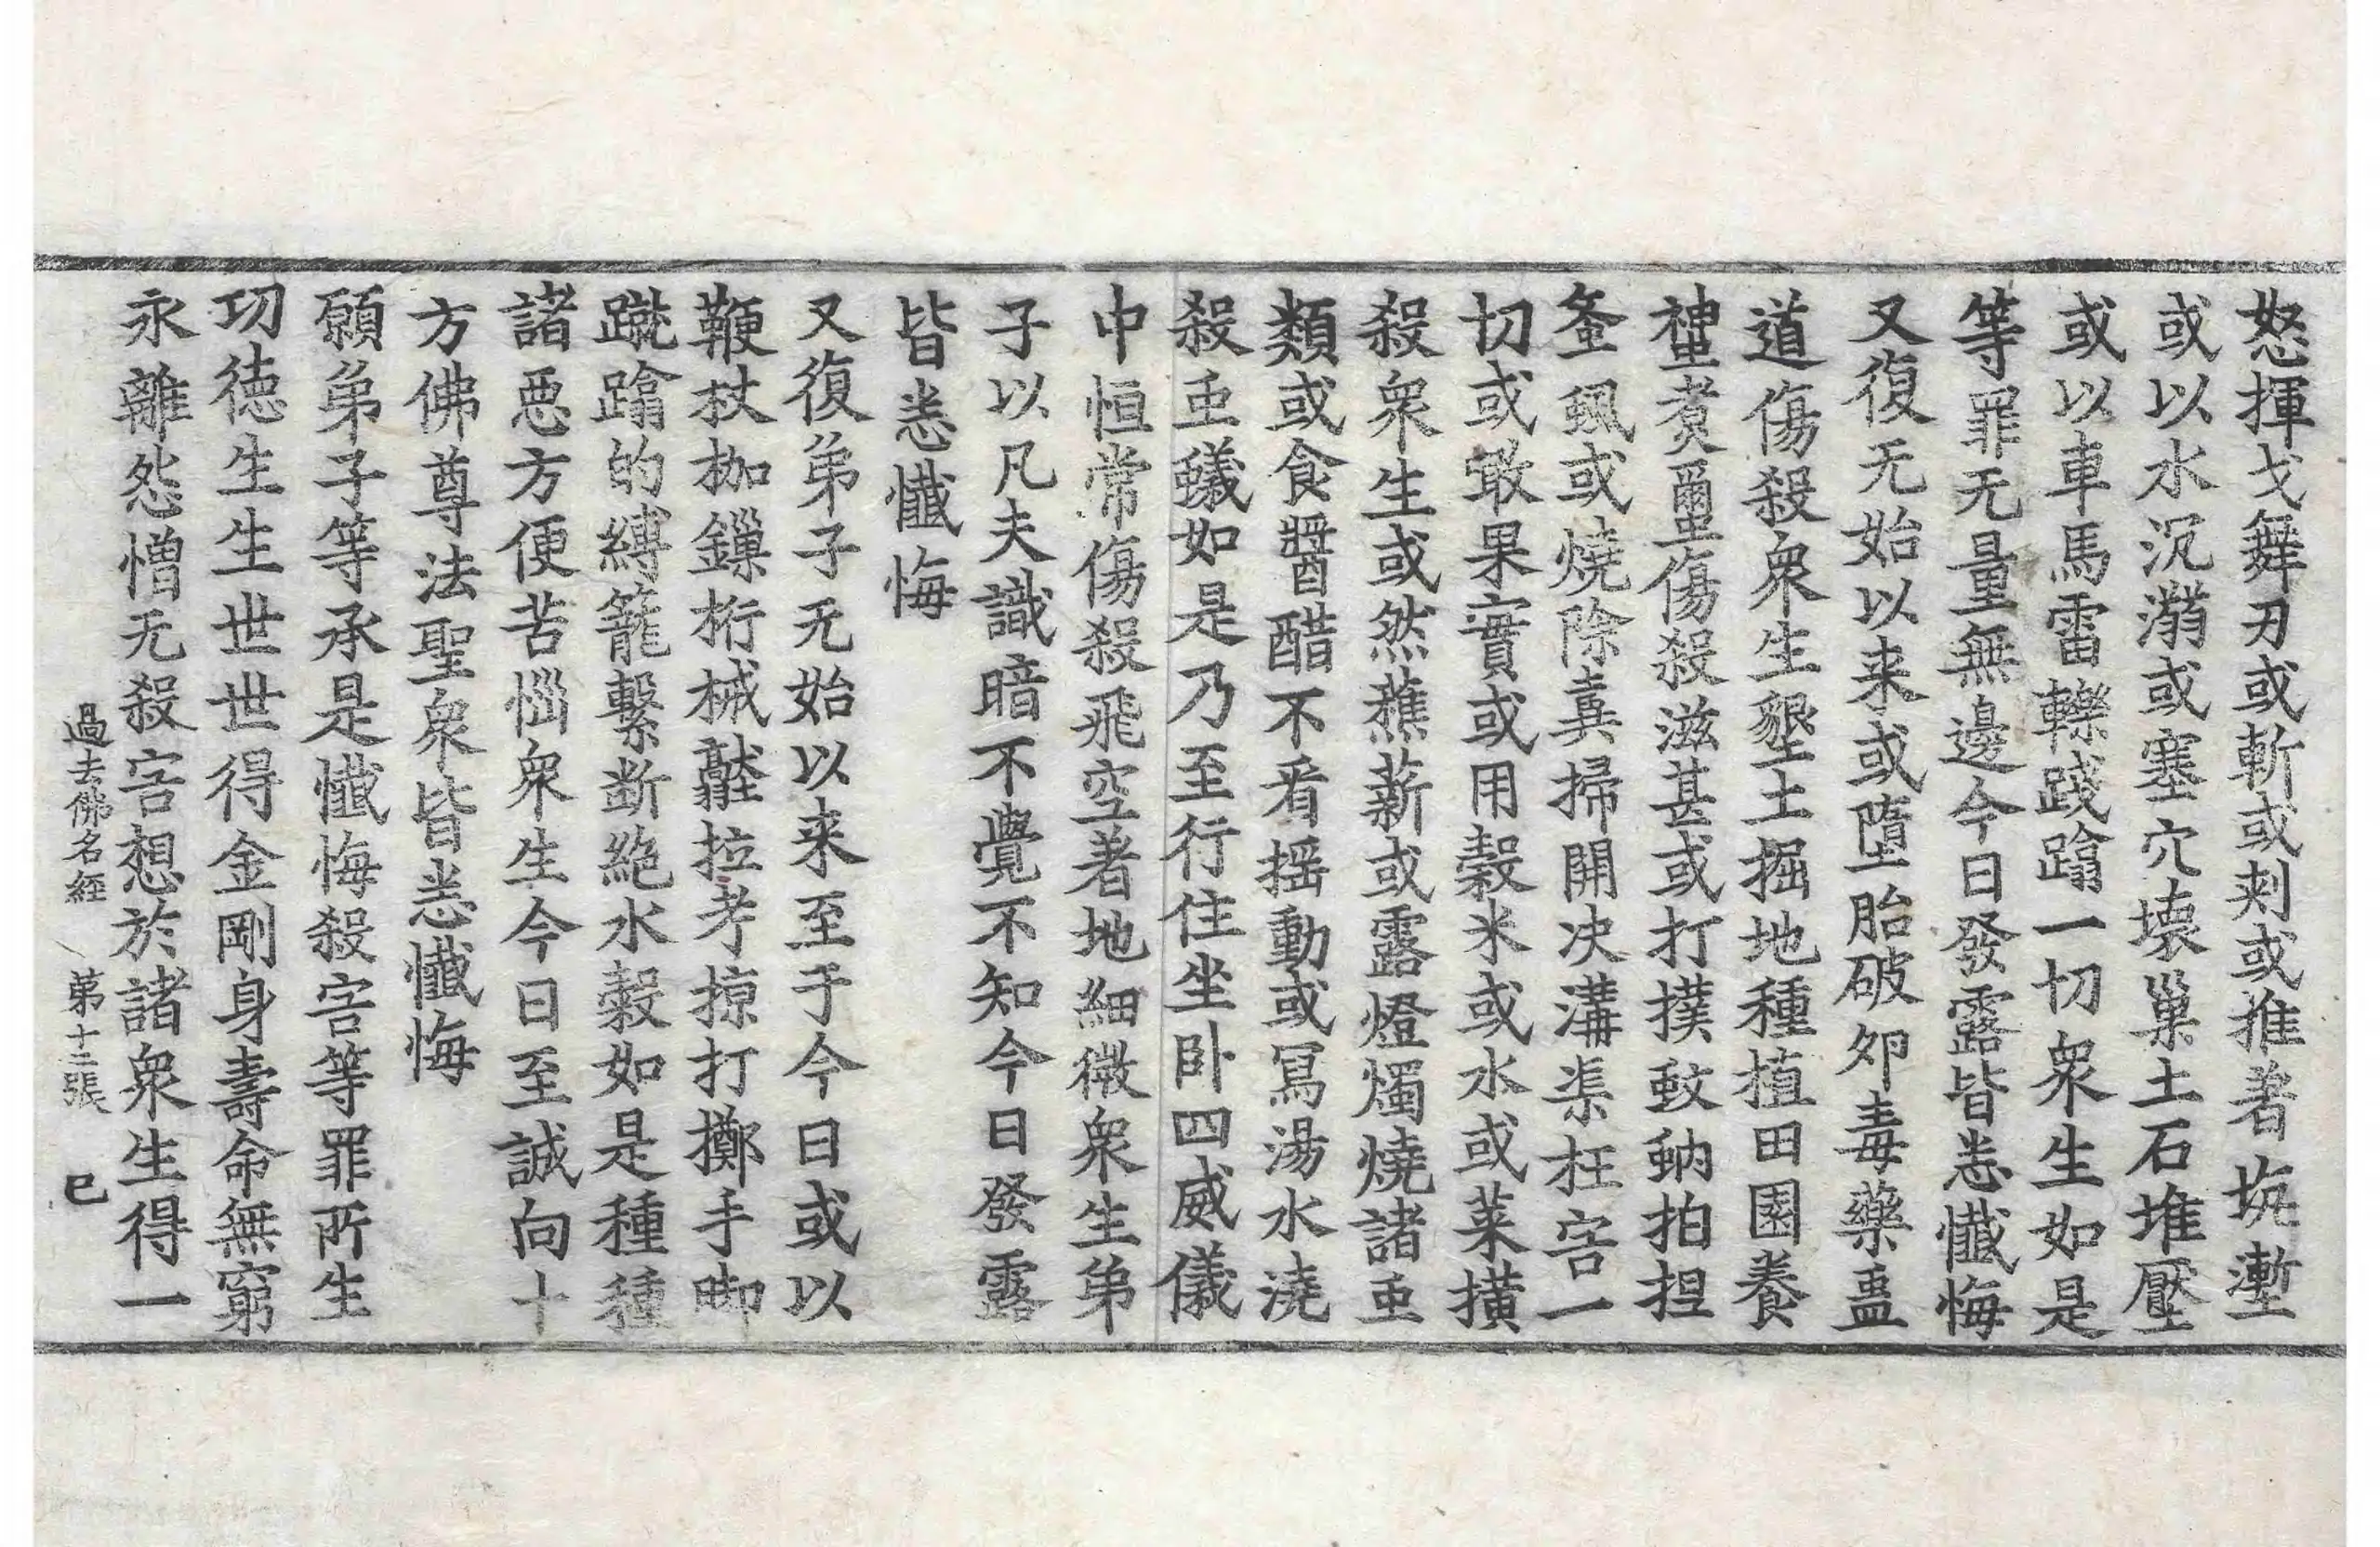 怒揮戈舞刃或斬或刾或推著坑塹
或以水沉溺或塞穴壊巢土石堆壓
或以車馬雷轢踐蹹一切衆生如是
等罪无量無邊今日發露皆悉懴悔
又復无始以来或墮胎破夘毒藥蠱
道傷殺衆生墾土掘地種植田園養
蚕煮蠒傷殺滋甚或打撲蚊蚋拍揑
蚤虱或燒除糞掃開决溝渠枉害一
切或噉果實或用穀米或水或菜撗
殺衆生或然蕉薪或露燈燭燒諸䖝
類或食醬醋不看揺動或冩湯水澆
殺䖝蟻如是乃至行住坐卧四威儀
中恒常傷殺飛空著地細微衆生弟
子以凡夫識暗不覺不知今日發露
皆悉懴悔
又復弟子无始以来至于今日或以
鞭杖枷鏁桁械壓拉考掠打擲手脚
蹴蹹的縛籠繫断絶水穀如是種種
諸惡方便苦惱衆生今日至誠向十
方佛尊法聖衆皆悉懴悔
願弟子等承是懴悔殺害等罪所生
㓛徳生生世世得金剛身壽命無窮
永離怨憎无殺害想於諸衆生得一
過去佛名經 第十二張 巳